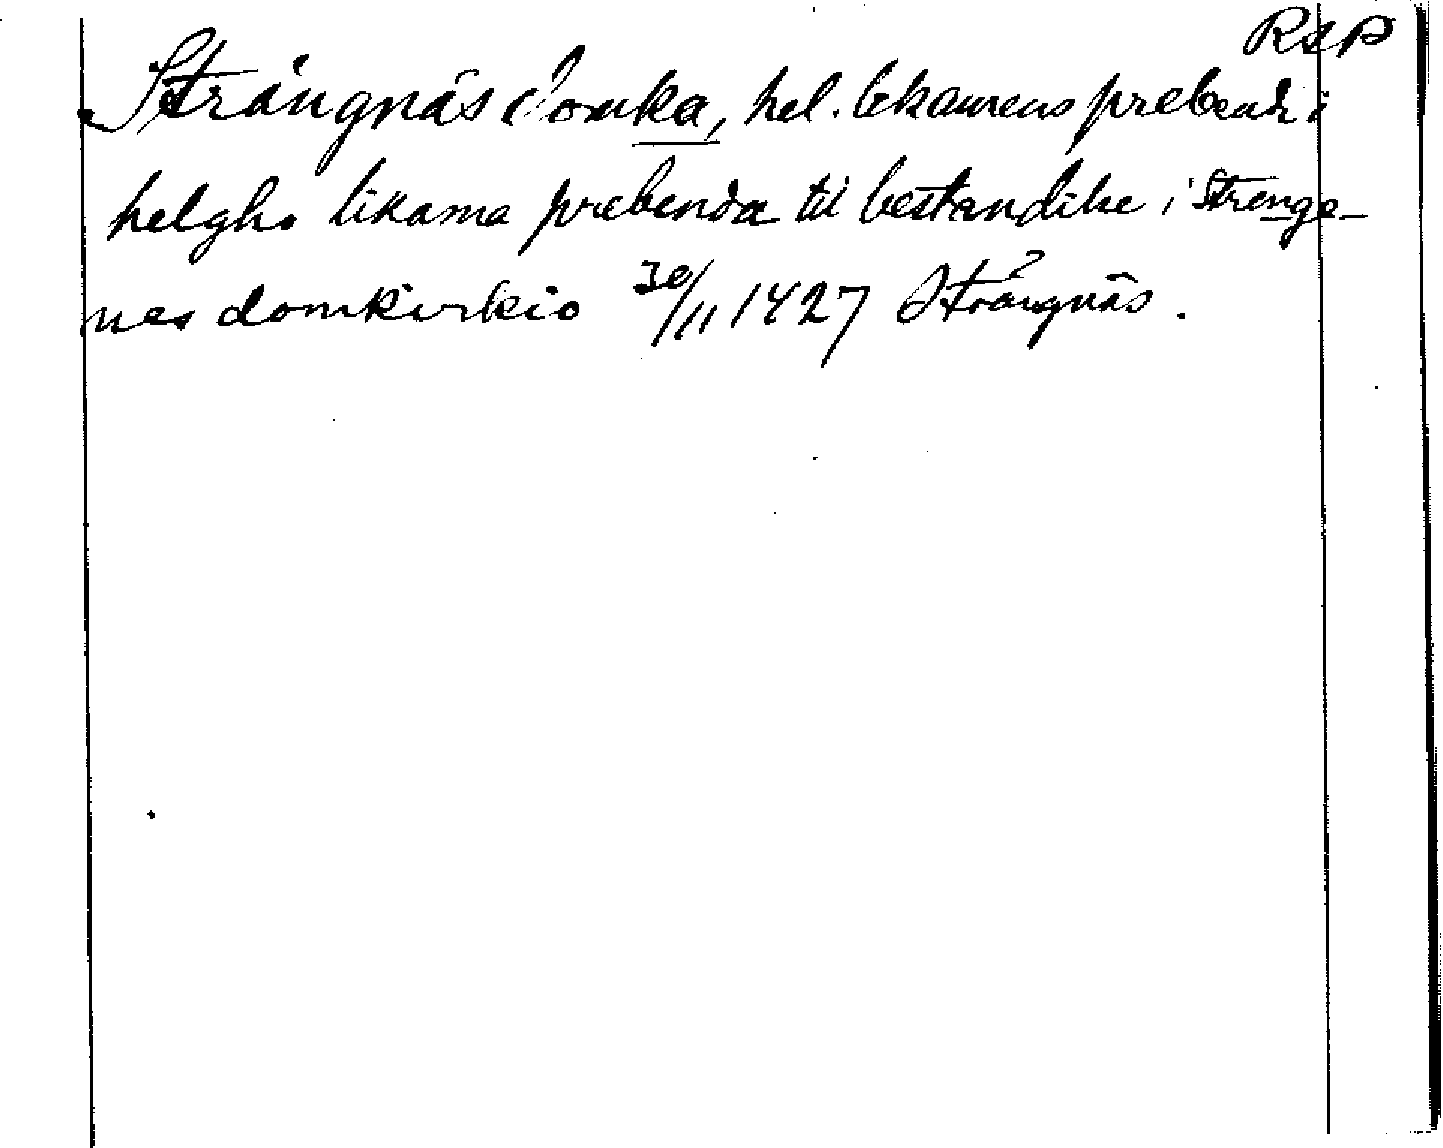 RAP
Strängnäs domka, hel. lekamens prebende i
helgho likama prebenda til bestandilse i Strenge-
nes domkirkio 30/11 1427 Strängnäs.